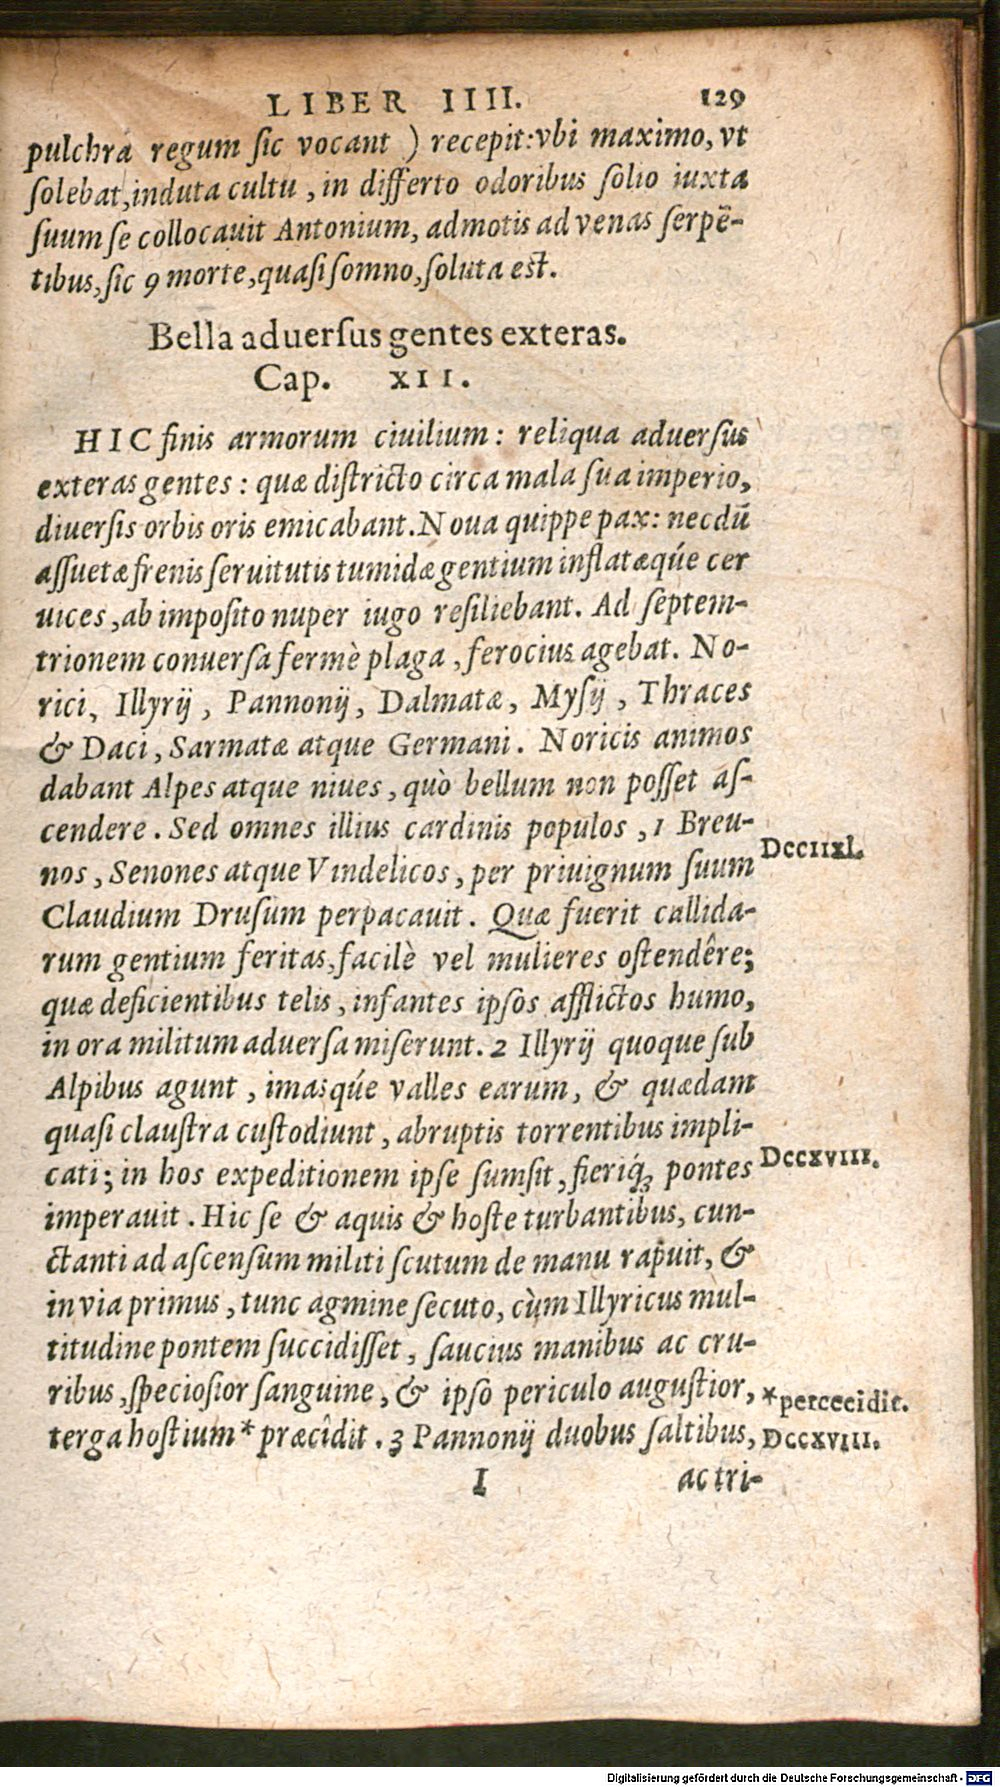 LIBER IIII. 129
pulchra regum sic vocant ) recepit: vbi maximo, vt
solebat, induta cultu, in differto odoribus solio iuxta
suum se collocauit Antonium, admotis ad venas serpē-
tibus, sic 9 morte, quasi somno, soluta est.
Bella aduersus gentes exteras.
Cap. XII.
HIC finis armorum ciuilium: reliqua aduersus
exteras gentes: quæ districto circa mala sua imperio,
diuersis orbis oris emicabant. Noua quippe pax: necdū
assuetæ frenis seruitutis tumidæ gentium inflatæqúe cer
uices, ab imposito nuper iugo resiliebant. Ad septem-
trionem conuersa fermè plaga, ferocius agebat. No-
rici, Illyrij, Pannonij, Dalmatæ, Mysij, Thraces
& Daci, Sarmatæ atque Germani. Noricis animos
dabant Alpes atque niues, quò bellum non posset as-
cendere. Sed omnes illius cardinis populos, 1 Breu-
nos, Senones atque Vindelicos, per priuignum suum
DccIIxl.
Claudium Drusum perpacauit. Quæ fuerit callida-
rum gentium feritas, facilè vel mulieres ostendêre;
quæ deficientibus telis, infantes ipsos afflictos humo,
in ora militum aduersa miserunt. 2 Illyrij quoque sub
Alpibus agunt, imasqúe valles earum, & quædam
quasi claustra custodiunt, abruptis torrentibus impli-
cati; in hos expeditionem ipse sumsit, fieriq́; pontes
DccxvIII.
imperauit. Hic se & aquis & hoste turbantibus, cun-
ctanti ad ascensum militi scutum de manu rapuit, &
in via primus, tunc agmine secuto, cùm Illyricus mul-
titudine pontem succidisset, saucius manibus ac cru-
ribus, speciosior sanguine, & ipso periculo augustior,
*percecidit.
terga hostium* præcîdit. 3 Pannonij duobus saltibus,
DccxvIII.
I ac tri-
Digitalisierung gefördert durch die Deutsche Forschungsgemeinschaft - DFG